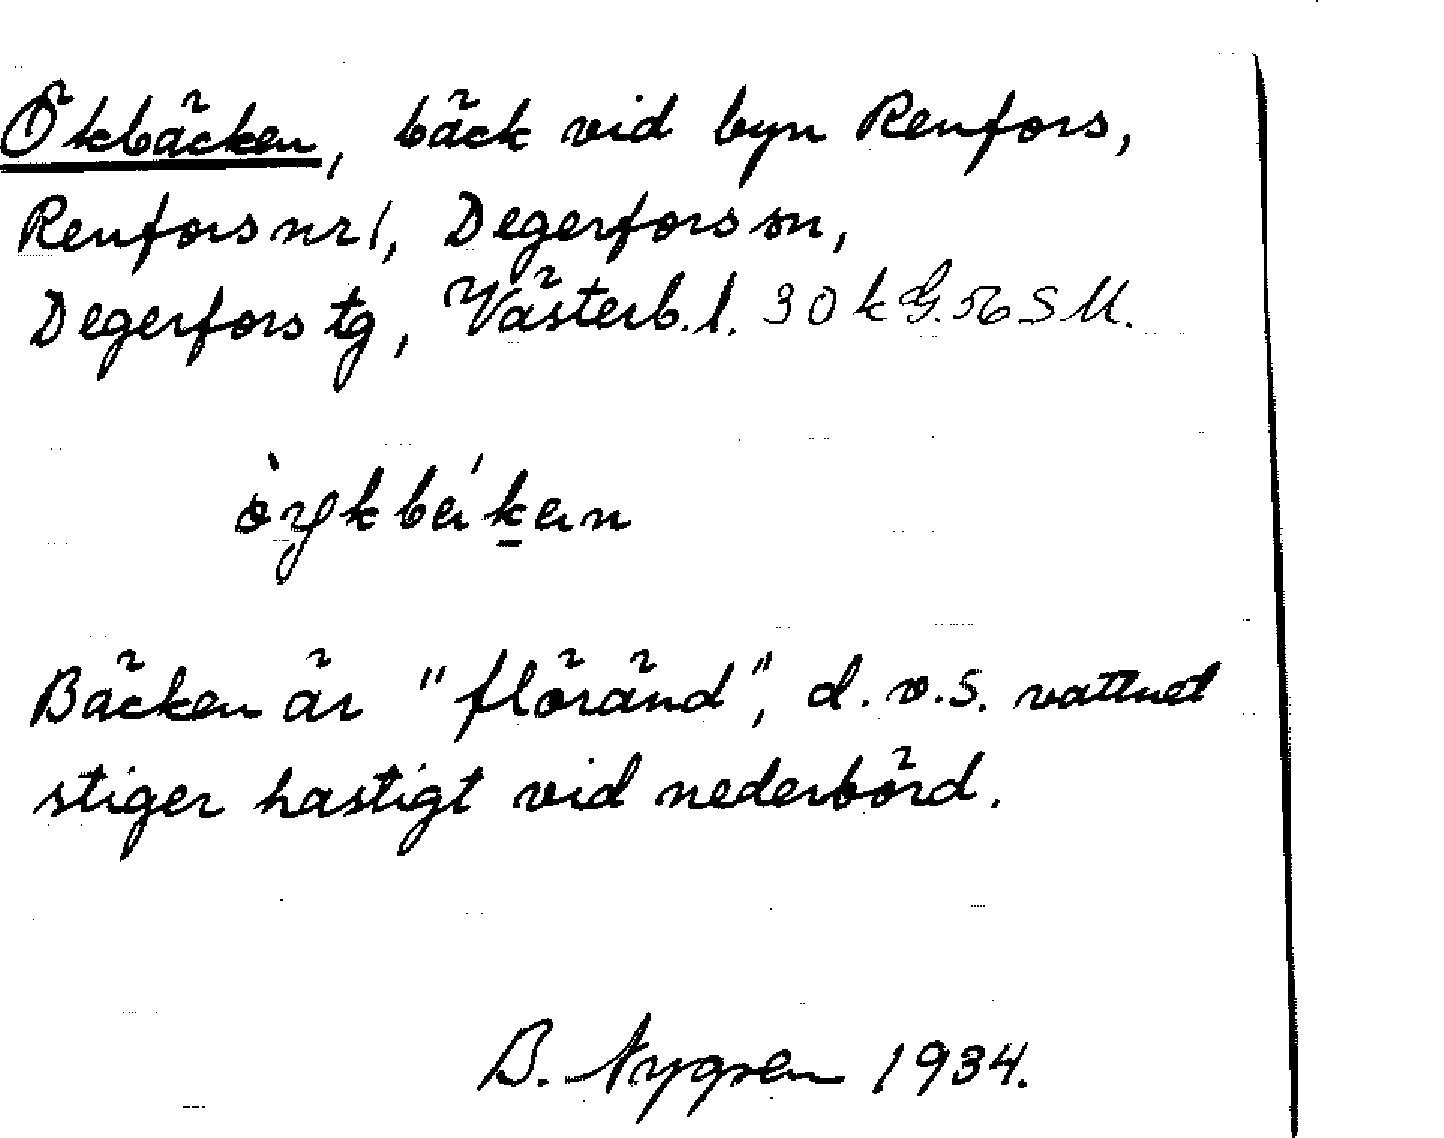 Ökbäcken, bäck vid byn Renfors,
Renfors nr 1, Degerfors sn,
Degerfors tg, Västerb. l. 30 k G. 56 S M.
Bäcken är "floränd", d.v.s. vattnet
stiger hastigt vid nederbörd.
B. Nygren 1934.